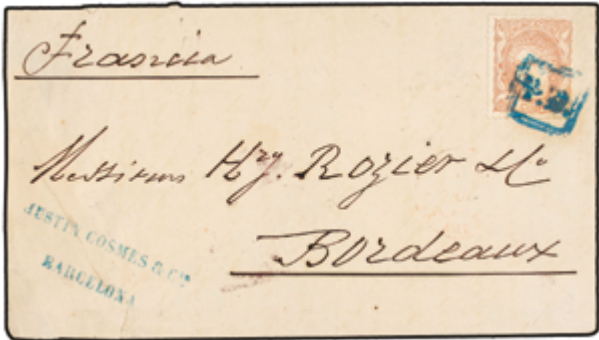 Francia
Messieurs Hry. Rozier & Cº
Bordeaux
JUSTIN COSMES & Cie
BARCELONA
P.D.